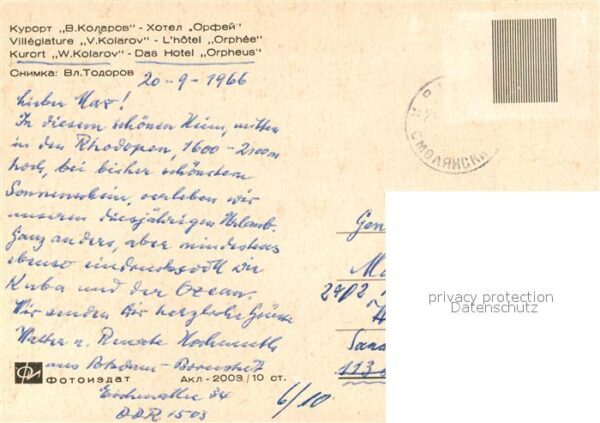 Курорт „В.Коларов" - Хотел „Орфей"
Villégiature „V.Kolarov" - L'hôtel „Orphée"
Kurort „W.Kolarov" - Das Hotel „Orpheus"
Снимка: Вл.Тодоров
20-9-1966
Lieber Max!
In diesem schönen Heim, mitten
in den Rhodopen, 1600-2000m
hoch, bei bisher schönstem
Sonnenschein, verleben wir
unseren diesjährigen Urlaub.
Ganz anders, aber mindestens
ebenso eindrucksvoll wie
Kuba und der Ozean.
Wir senden Dir herzliche Grüsse
Walter u. Renate
aus Potsdam-Bornstedt
Фотоиздат Акл-2003/10 ст.
34
DDR 1503
6/10
СМОЛЯНСКИ
Gen
Ma
2402
San
113
privacy protection
Datenschutz